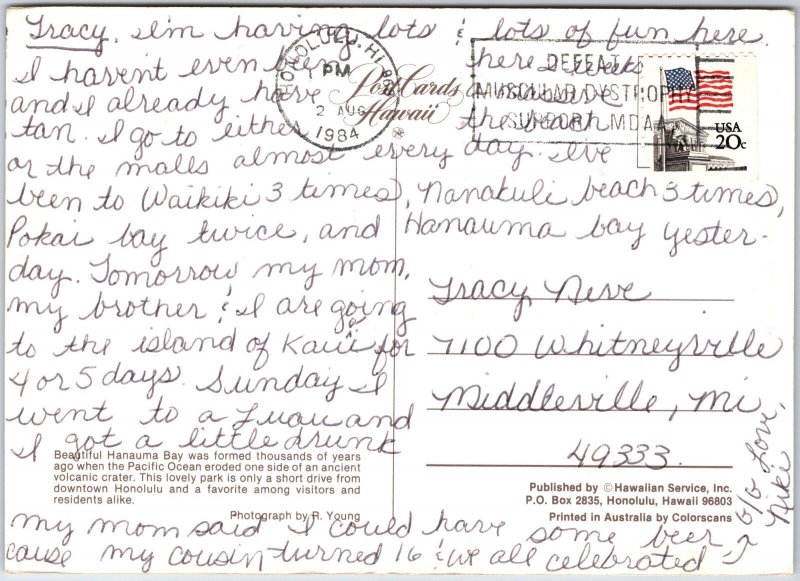 Tracy, I'm having lots & lots of fun here.
I havent even been here 2 weeks
and I already have a decent
tan. I go to either the beach
or the malls almost every day. I've
been to Waikiki 3 times, Nanakuli beach 3 times,
Pokai bay twice, and Hanauma bay yester-
day. Tomorrow my mom,
my brother & I are going
to the island of Kauii for
4 or 5 days. Sunday I
went to a Luau and
I got a little drunk
my mom said I could have some beer
cause my cousin turned 16 & we all celebrated →
G/G Love,
Niki
HONOLULU, HI 968
1 PM
2 AUG
1984
PostCards
Hawaii
DEFEAT
MUSCULAR DYSTROPHY
SUPPORT MDAA
USA
20c
Tracy Neve
7100 Whitneyville
Middleville, Mi
49333
Beautiful Hanauma Bay was formed thousands of years
ago when the Pacific Ocean eroded one side of an ancient
volcanic crater. This lovely park is only a short drive from
downtown Honolulu and a favorite among visitors and
residents alike.
Photograph by R. Young
Published by © Hawaiian Service, Inc.
P.O. Box 2835, Honolulu, Hawaii 96803
Printed in Australia by Colorscans